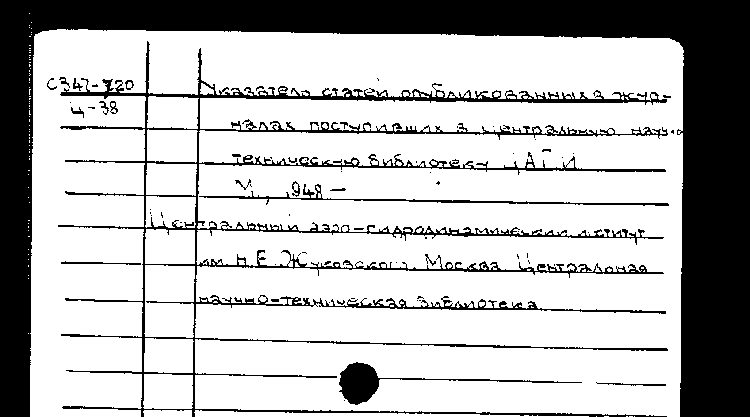 С347-720 Указатель статей, опубликованных в жур-
Ц-38
налах поступивших в Центральную науч.-
техническую библиотеку ЦАГИ
М., 1948 —
Центральный аэро-гидродинамический институт
им. Н.Е. Жуковского. Москва. Центральная
научно-техническая библиотека